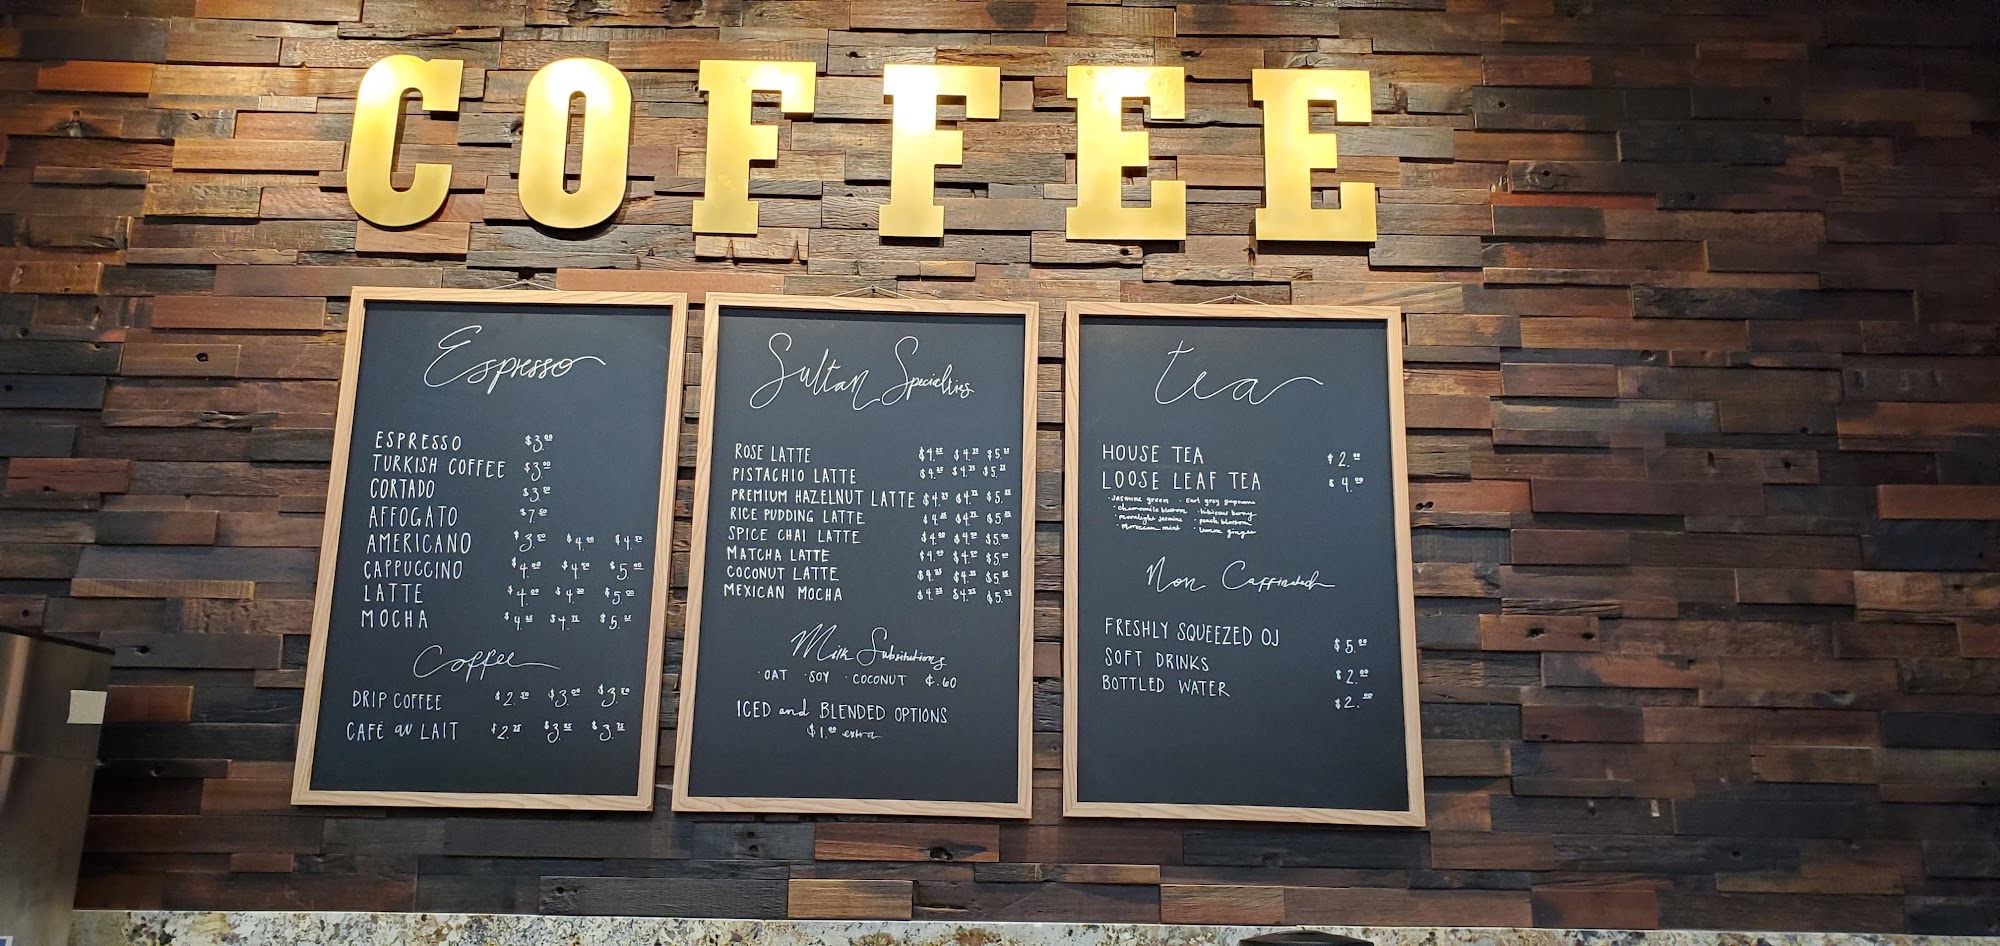 COFFEE
Espresso
ESPRESSO $3.00
TURKISH COFFEE $3.00
CORTADO $3.50
AFFOGATO $7.50
AMERICANO $3.50 $4.00 $4.50
CAPPUCCINO $4.00 $4.50 $5.00
LATTE $4.00 $4.50 $5.00
MOCHA $4.25 $4.75 $5.25
Coffee
DRIP COFFEE $2.50 $3.00 $3.50
CAFÉ au LAIT $2.75 $3.25 $3.75
Sultan Specialties
ROSE LATTE $4.25 $4.75 $5.25
PISTACHIO LATTE $4.25 $4.75 $5.25
PREMIUM HAZELNUT LATTE $4.25 $4.75 $5.25
RICE PUDDING LATTE $4.25 $4.75 $5.25
SPICE CHAI LATTE $4.00 $4.50 $5.00
MATCHA LATTE $4.00 $4.50 $5.00
COCONUT LATTE $4.25 $4.75 $5.25
MEXICAN MOCHA $4.25 $4.75 $5.25
Milk Subsitutions
· OAT · SOY · COCONUT ¢.60
ICED and BLENDED OPTIONS
$1.00 extra
tea
HOUSE TEA $2.00
LOOSE LEAF TEA $4.00
· Jasmine green · Earl grey
· chamomile blossom · hibiscus berry
· moonlight Jasmine · peach blossom
· Moroccan mint · lemon ginger
Non Caffinated
FRESHLY SQUEEZED OJ $5.00
SOFT DRINKS $2.00
BOTTLED WATER $2.00